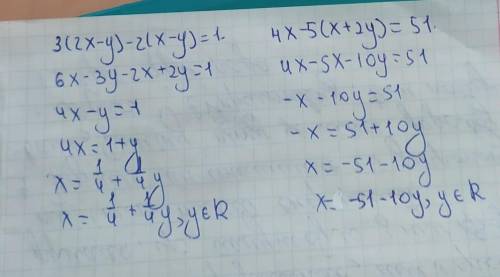 3(2x-y)-2(x-y)=1.
6x-3y-2x+2y=1
4x-y=1
4x=1+y
x=1/4+1/4y
x=1/4+1/4y, y∈R
4x-5(x+2y)=51.
4x-5x-10y=51
-x-10y=51
-x=51+10y
x=-51-10y
x=-51-10y, y∈R